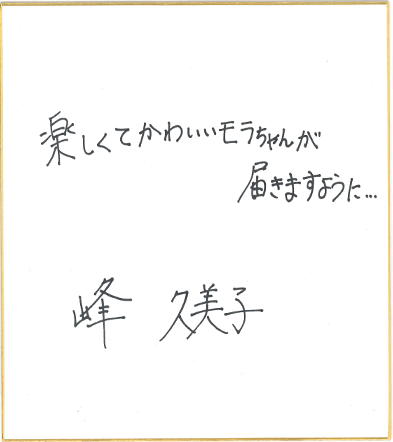 楽しくてかわいいモラちゃんが
届きますように…
峰 久美子